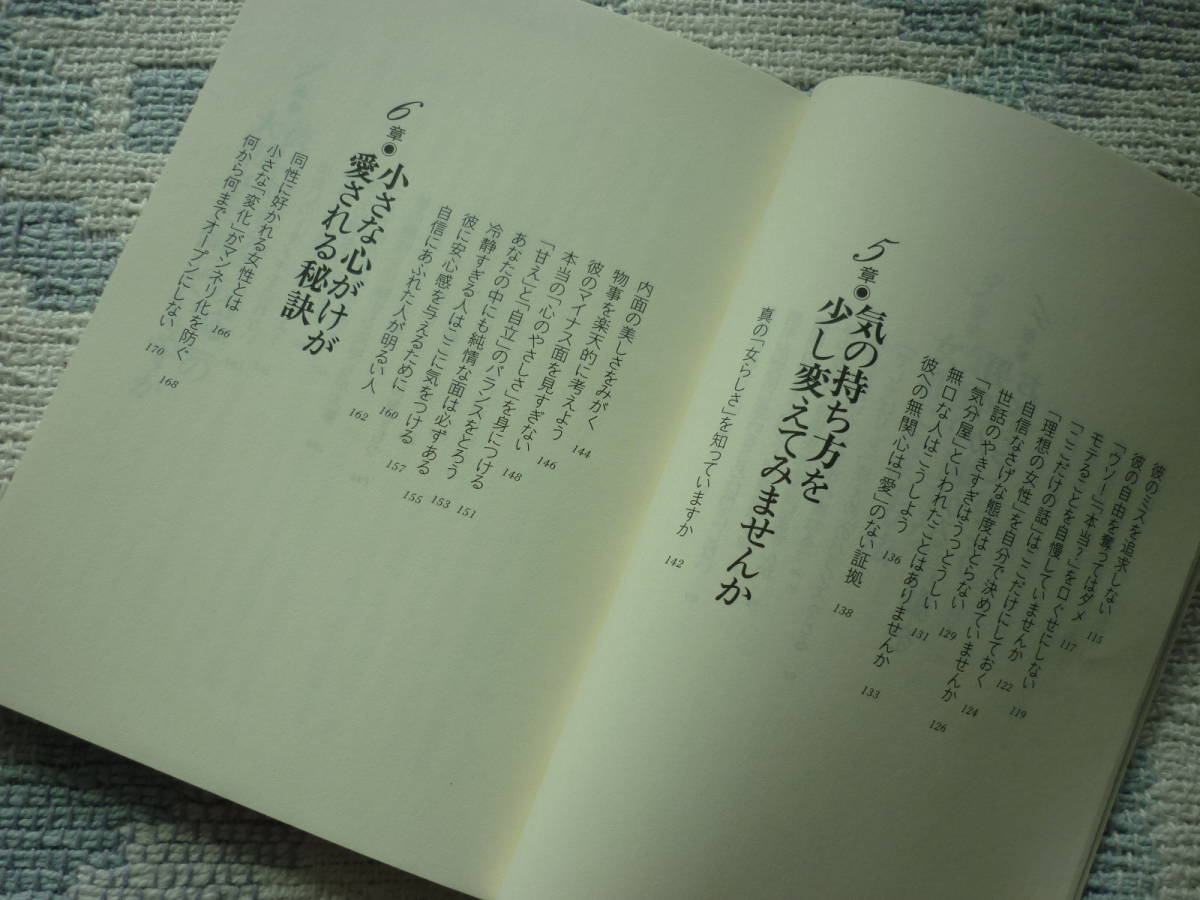 彼のミスを追求しない 115
彼の自由を奪ってはダメ 117
「ウソー」「本当?」を口ぐせにしない 119
モテることを自慢していませんか 122
「ここだけの話」はここだけにしておく 124
「理想の女性」を自分で決めていませんか 126
自信なさげな態度はとらない 129
世話のやきすぎはうっとうしい 131
「気分屋」といわれたことはありませんか 133
無口な人はこうしよう 136
彼への無関心は「愛」のない証拠 138
5章◉気の持ち方を
少し変えてみませんか
真の「女らしさ」を知っていますか 142
内面の美しさをみがく 144
物事を楽天的に考えよう 146
彼のマイナス面を見すぎない 148
本当の「心のやさしさ」を身につける 151
「甘え」と「自立」のバランスをとろう 153
あなたの中にも純情な面は必ずある 155
冷静すぎる人はここに気をつける 157
彼に安心感を与えるために 160
自信にあふれた人が明るい人 162
6章◉小さな心がけが
愛される秘訣
同性に好かれる女性とは 166
小さな「変化」がマンネリ化を防ぐ 168
何から何までオープンにしない 170